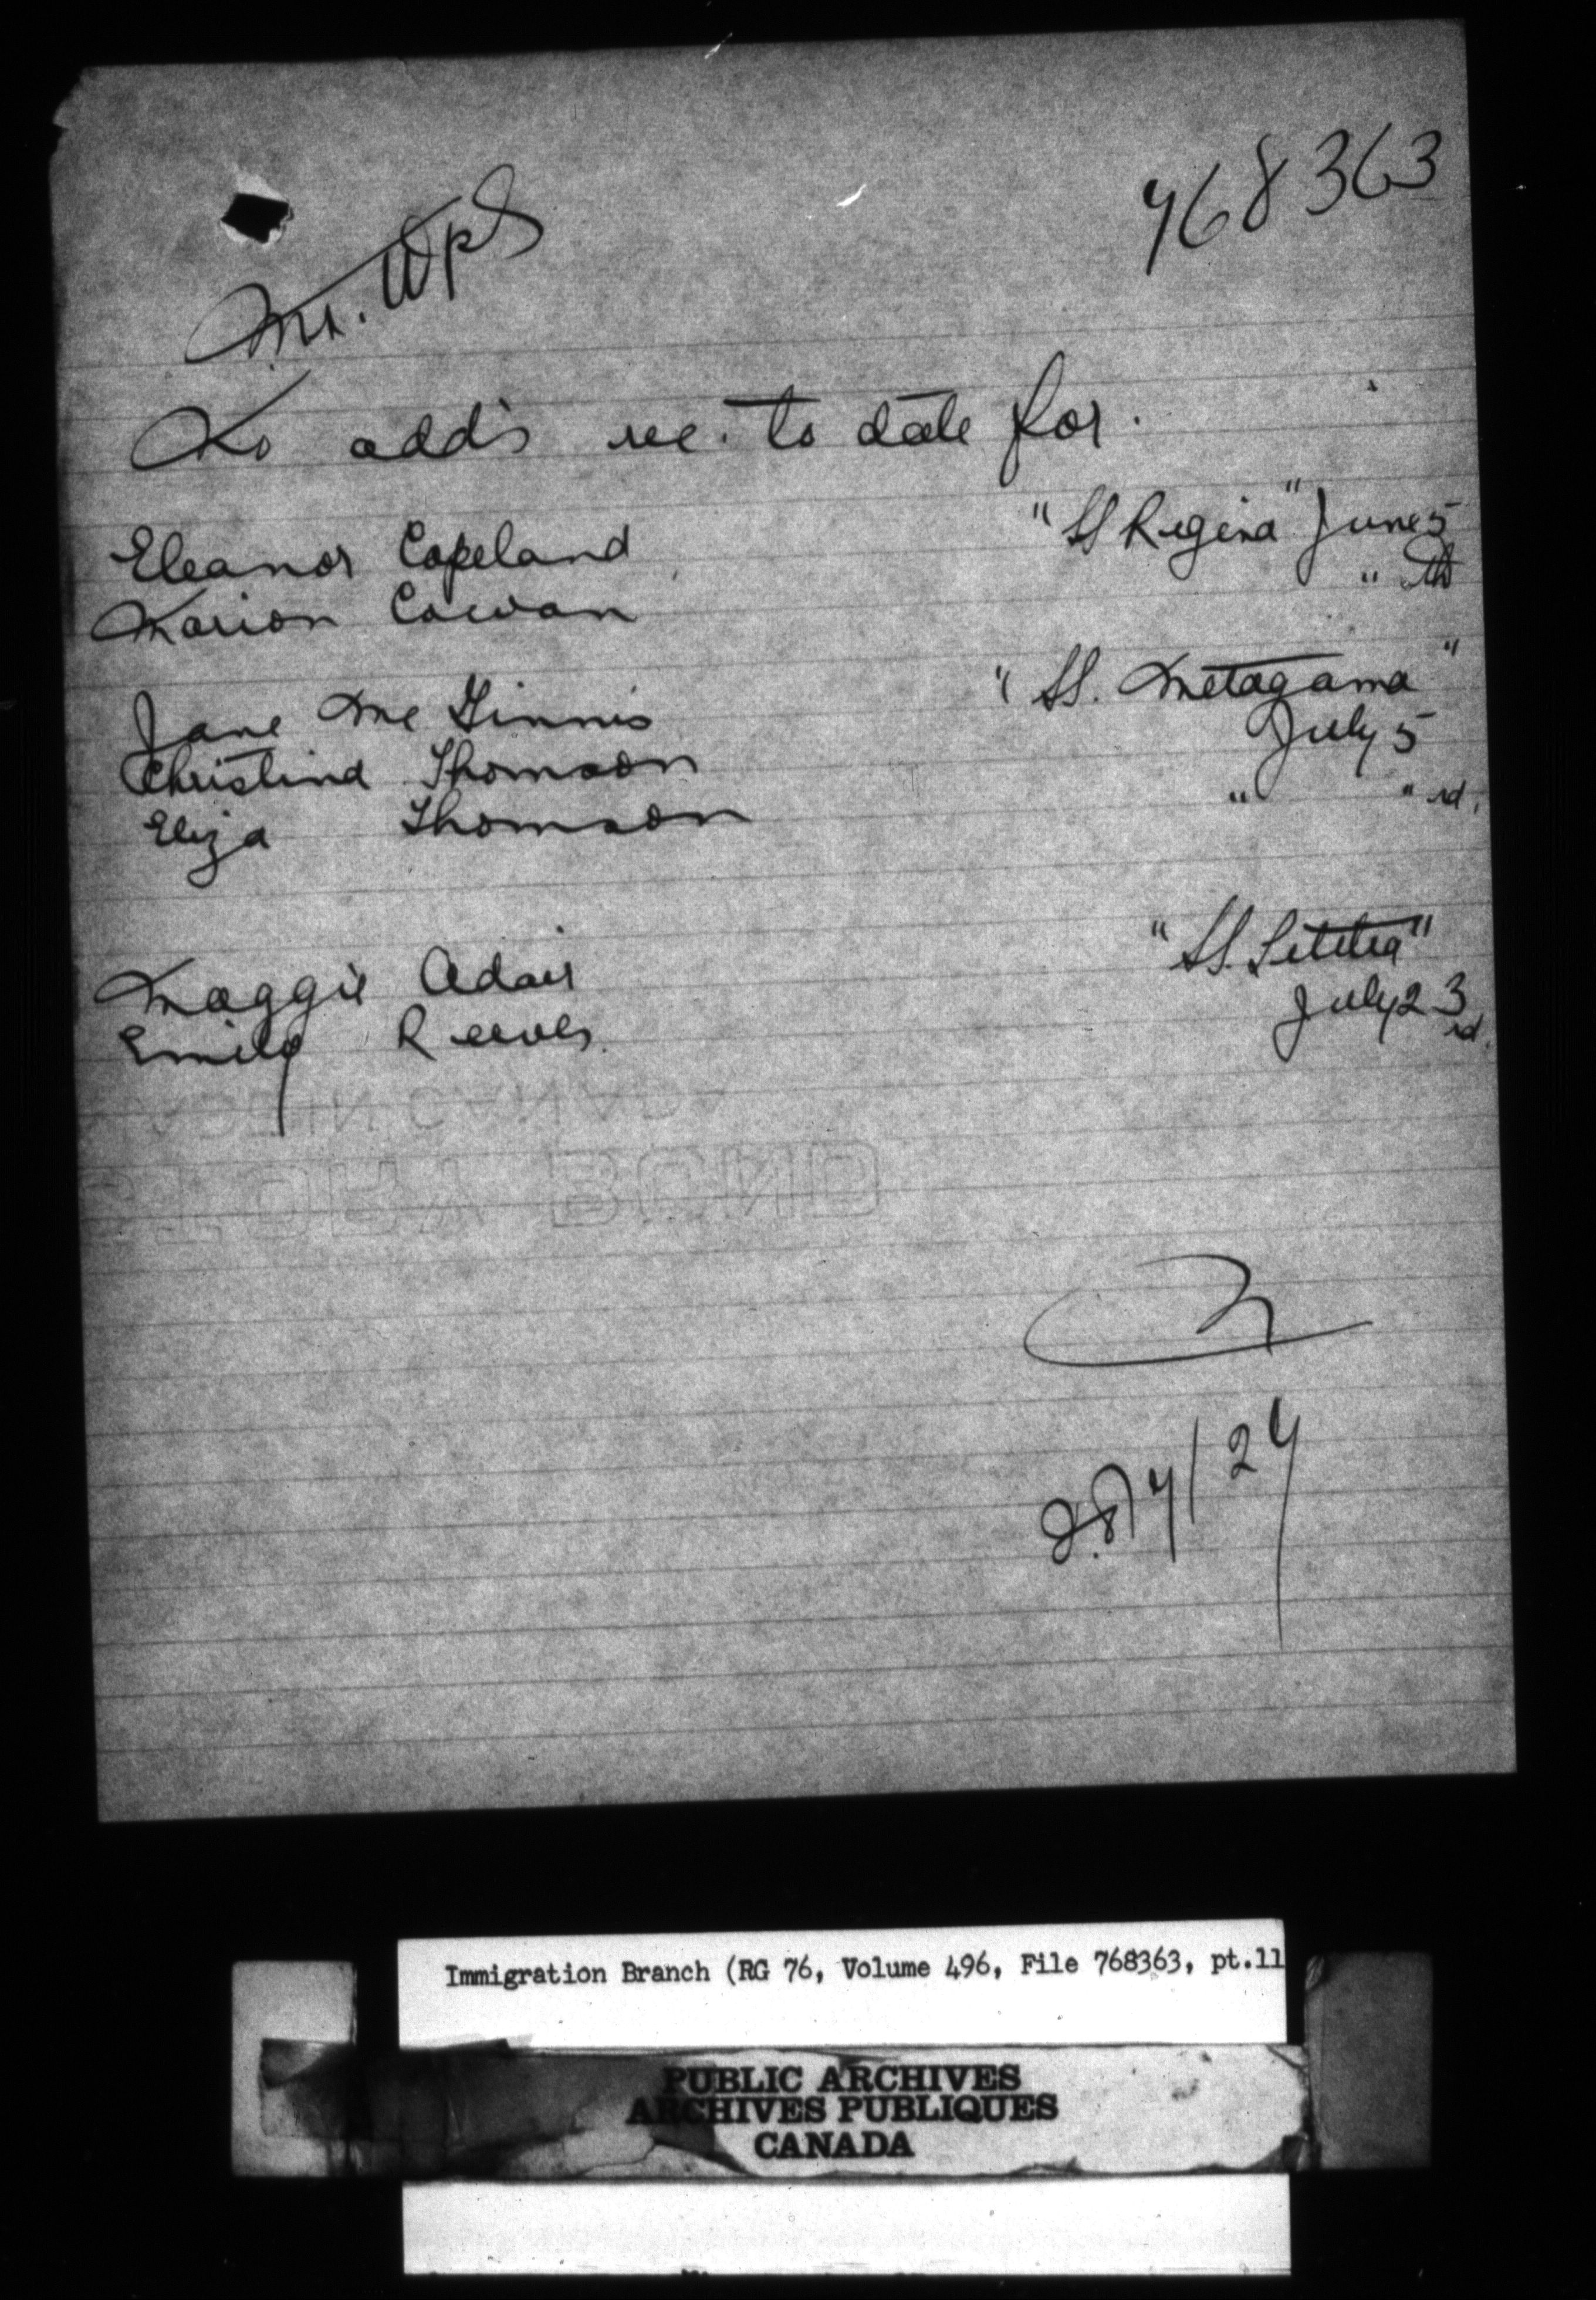 768363
Mr.
No add's rec. to date for.
Eleanor Copeland "SS Regina" June 5
Marion Cowan " th
Jane McGinnis "SS. Metagama"
Christina Thomson July 5
Eliza Thomson " " rd.
Maggie Adair "SS. Letitia"
Emily Reeves. July 23rd.
MADE IN CANADA
BOND
/24
Immigration Branch (RG 76, Volume 496, File 768363, pt.11
PUBLIC ARCHIVES
ARCHIVES PUBLIQUES
CANADA